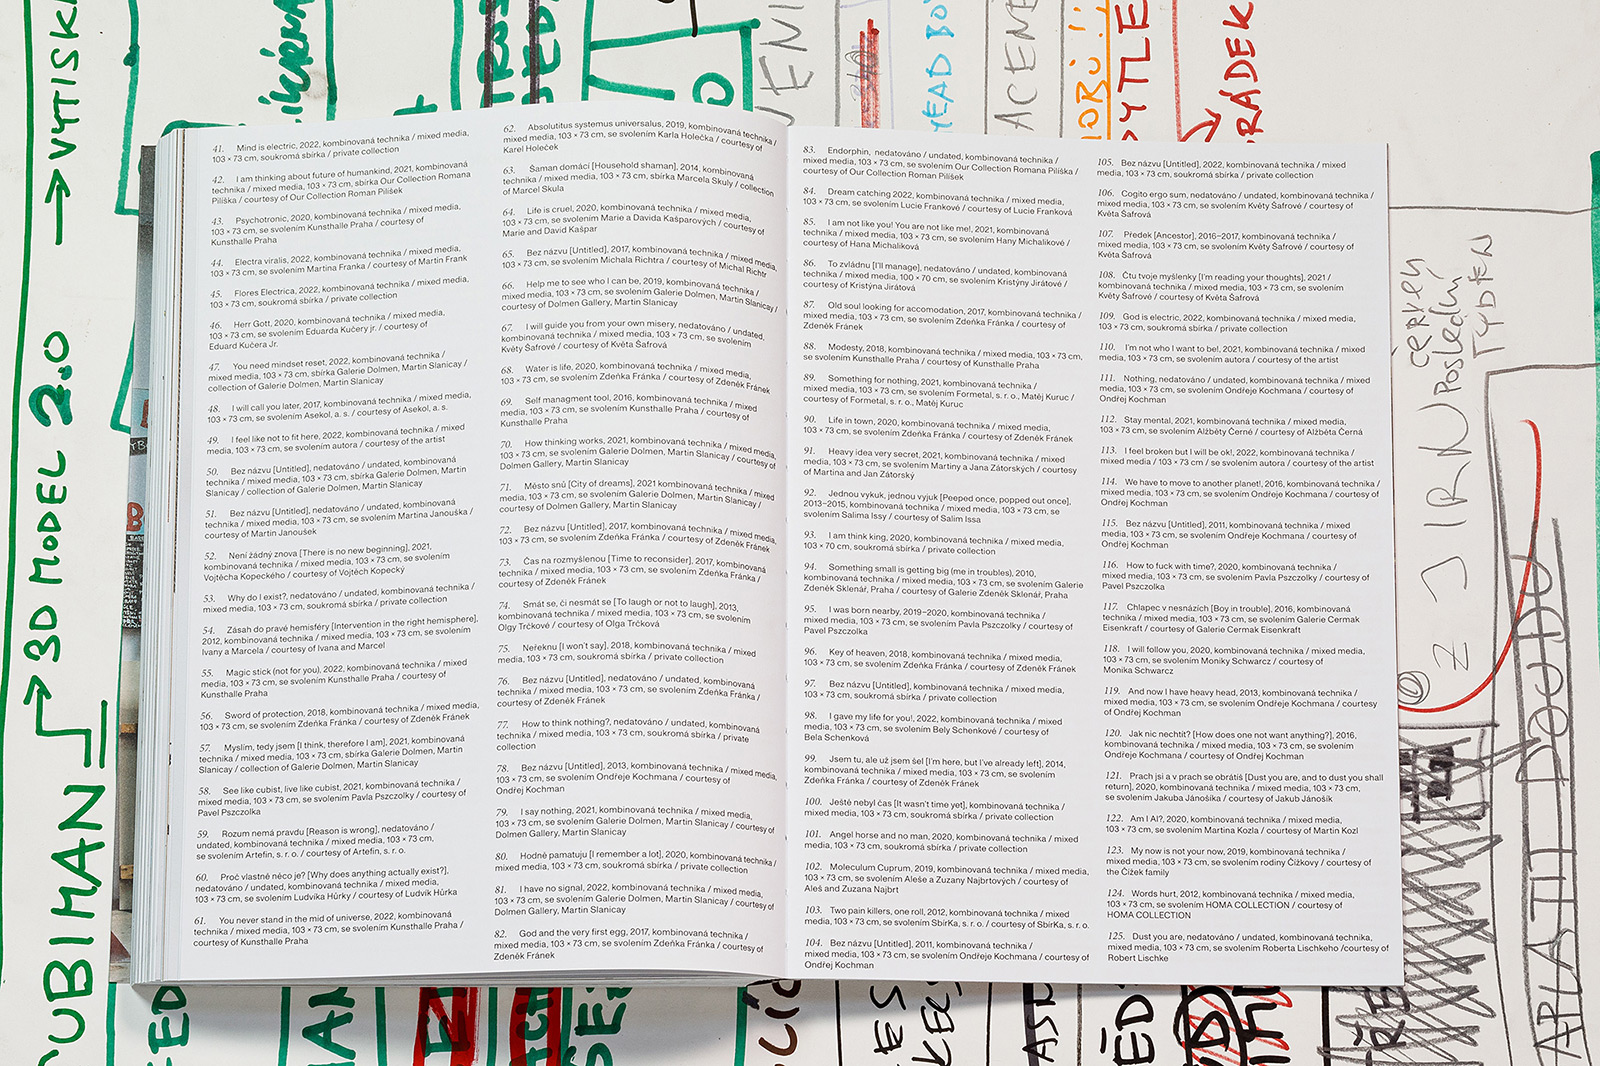 41. Mind is electric, 2022, kombinovaná technika / mixed media,
103 × 73 cm, soukromá sbírka / private collection
42. I am thinking about future of humankind, 2021, kombinovaná
technika / mixed media, 103 × 73 cm, sbírka Our Collection Romana
Pilíška / courtesy of Our Collection Roman Pilíšek
43. Psychotronic, 2020, kombinovaná technika / mixed media,
103 × 73 cm, se svolením Kunsthalle Praha / courtesy of
Kunsthalle Praha
44. Electra viralis, 2022, kombinovaná technika / mixed media,
103 × 73 cm, se svolením Martina Franka / courtesy of Martin Frank
45. Flores Electrica, 2022, kombinovaná technika / mixed media,
103 × 73 cm, soukromá sbírka / private collection
46. Herr Gott, 2020, kombinovaná technika / mixed media,
103 × 73 cm, se svolením Eduarda Kučery jr. / courtesy of
Eduard Kučera Jr.
47. You need mindset reset, 2022, kombinovaná technika /
mixed media, 103 × 73 cm, sbírka Galerie Dolmen, Martin Slanicay /
collection of Galerie Dolmen, Martin Slanicay
48. I will call you later, 2017, kombinovaná technika / mixed media,
103 × 73 cm, se svolením Asekol, a. s. / courtesy of Asekol, a. s.
49. I feel like not to fit here, 2022, kombinovaná technika / mixed
media, 103 × 73 cm, se svolením autora / courtesy of the artist
50. Bez názvu [Untitled], nedatováno / undated, kombinovaná
technika / mixed media, 103 × 73 cm, sbírka Galerie Dolmen, Martin
Slanicay / collection of Galerie Dolmen, Martin Slanicay
51. Bez názvu [Untitled], nedatováno / undated, kombinovaná
technika / mixed media, 103 × 73 cm, se svolením Martina Janouška /
courtesy of Martin Janoušek
52. Není žádný znova [There is no new beginning], 2021,
kombinovaná technika / mixed media, 103 × 73 cm, se svolením
Vojtěcha Kopeckého / courtesy of Vojtěch Kopecký
53. Why do I exist?, nedatováno / undated, kombinovaná technika /
mixed media, 103 × 73 cm, soukromá sbírka / private collection
54. Zásah do pravé hemisféry [Intervention in the right hemisphere],
2012, kombinovaná technika / mixed media, 103 × 73 cm, se svolením
Ivany a Marcela / courtesy of Ivana and Marcel
55. Magic stick (not for you), 2022, kombinovaná technika / mixed
media, 103 × 73 cm, se svolením Kunsthalle Praha / courtesy of
Kunsthalle Praha
56. Sword of protection, 2018, kombinovaná technika / mixed media,
103 × 73 cm, se svolením Zdeňka Fránka / courtesy of Zdeněk Fránek
57. Myslím, tedy jsem [I think, therefore I am], 2021, kombinovaná
technika / mixed media, 103 × 73 cm, sbírka Galerie Dolmen, Martin
Slanicay / collection of Galerie Dolmen, Martin Slanicay
58. See like cubist, live like cubist, 2021, kombinovaná technika /
mixed media, 103 × 73 cm, se svolením Pavla Pszczolky / courtesy of
Pavel Pszczolka
59. Rozum nemá pravdu [Reason is wrong], nedatováno /
undated, kombinovaná technika / mixed media, 103 × 73 cm,
se svolením Artefin, s. r. o. / courtesy of Artefin, s. r. o.
60. Proč vlastně něco je? [Why does anything actually exist?],
nedatováno / undated, kombinovaná technika / mixed media,
103 × 73 cm, se svolením Ludvíka Hůrky / courtesy of Ludvík Hůrka
61. You never stand in the mid of universe, 2022, kombinovaná
technika / mixed media, 103 × 73 cm, se svolením Kunsthalle Praha /
courtesy of Kunsthalle Praha
62. Absolutitus systemus universalus, 2019, kombinovaná technika /
mixed media, 103 × 73 cm, se svolením Karla Holečka / courtesy of
Karel Holeček
63. Šaman domácí [Household shaman], 2014, kombinovaná
technika / mixed media, 103 × 73 cm, sbírka Marcela Skuly / collection
of Marcel Skula
64. Life is cruel, 2020, kombinovaná technika / mixed media,
103 × 73 cm, se svolením Marie a Davida Kašparových / courtesy of
Marie and David Kašpar
65. Bez názvu [Untitled], 2017, kombinovaná technika / mixed media,
103 × 73 cm, se svolením Michala Richtra / courtesy of Michal Richtr
66. Help me to see who I can be, 2019, kombinovaná technika /
mixed media, 103 × 73 cm, se svolením Galerie Dolmen, Martin Slanicay /
courtesy of Dolmen Gallery, Martin Slanicay
67. I will guide you from your own misery, nedatováno / undated,
kombinovaná technika / mixed media, 103 × 73 cm, se svolením
Květy Šafrové / courtesy of Květa Šafrová
68. Water is life, 2020, kombinovaná technika / mixed media,
103 × 73 cm, se svolením Zdeňka Fránka / courtesy of Zdeněk Fránek
69. Self managment tool, 2016, kombinovaná technika / mixed
media, 103 × 73 cm, se svolením Kunsthalle Praha / courtesy of
Kunsthalle Praha
70. How thinking works, 2021, kombinovaná technika / mixed media,
103 × 73 cm, se svolením Galerie Dolmen, Martin Slanicay / courtesy of
Dolmen Gallery, Martin Slanicay
71. Město snů [City of dreams], 2021 kombinovaná technika / mixed
media, 103 × 73 cm, se svolením Galerie Dolmen, Martin Slanicay /
courtesy of Dolmen Gallery, Martin Slanicay
72. Bez názvu [Untitled], 2017, kombinovaná technika / mixed media,
103 × 73 cm, se svolením Zdeňka Fránka / courtesy of Zdeněk Fránek
73. Čas na rozmyšlenou [Time to reconsider], 2017, kombinovaná
technika / mixed media, 103 × 73 cm, se svolením Zdeňka Fránka /
courtesy of Zdeněk Fránek
74. Smát se, či nesmát se [To laugh or not to laugh], 2013,
kombinovaná technika / mixed media, 103 × 73 cm, se svolením
Olgy Trčkové / courtesy of Olga Trčková
75. Neřeknu [I won't say], 2018, kombinovaná technika / mixed
media, 103 × 73 cm, soukromá sbírka / private collection
76. Bez názvu [Untitled], nedatováno / undated, kombinovaná
technika / mixed media, 103 × 73 cm, se svolením Zdeňka Fránka /
courtesy of Zdeněk Fránek
77. How to think nothing?, nedatováno / undated, kombinovaná
technika / mixed media, 103 × 73 cm, soukromá sbírka / private
collection
78. Bez názvu [Untitled], 2013, kombinovaná technika / mixed media,
103 × 73 cm, se svolením Ondřeje Kochmana / courtesy of
Ondřej Kochman
79. I say nothing, 2021, kombinovaná technika / mixed media,
103 × 73 cm, se svolením Galerie Dolmen, Martin Slanicay / courtesy of
Dolmen Gallery, Martin Slanicay
80. Hodně pamatuju [I remember a lot], 2020, kombinovaná technika /
mixed media, 103 × 73 cm, soukromá sbírka / private collection
81. I have no signal, 2022, kombinovaná technika / mixed media,
103 × 73 cm, se svolením Galerie Dolmen, Martin Slanicay / courtesy of
Dolmen Gallery, Martin Slanicay
82. God and the very first egg, 2017, kombinovaná technika /
mixed media, 103 × 73 cm, se svolením Zdeňka Fránka / courtesy of
Zdeněk Fránek
83. Endorphin, nedatováno / undated, kombinovaná technika /
mixed media, 103 × 73 cm, se svolením Our Collection Romana Pilíška /
courtesy of Our Collection Roman Pilíšek
84. Dream catching 2022, kombinovaná technika / mixed media,
103 × 73 cm, se svolením Lucie Frankové / courtesy of Lucie Franková
85. I am not like you! You are not like me!, 2021, kombinovaná
technika / mixed media, 103 × 73 cm, se svolením Hany Michalíkové /
courtesy of Hana Michalíková
86. To zvládnu [I'll manage], nedatováno / undated, kombinovaná
technika / mixed media, 100 × 70 cm, se svolením Kristýny Jirátové /
courtesy of Kristýny Jirátová
87. Old soul looking for accomodation, 2017, kombinovaná technika /
mixed media, 103 × 73 cm, se svolením Zdeňka Fránka / courtesy of
Zdeněk Fránek
88. Modesty, 2018, kombinovaná technika / mixed media, 103 × 73 cm,
se svolením Kunsthalle Praha / courtesy of Kunsthalle Praha
89. Something for nothing, 2021, kombinovaná technika /
mixed media, 103 × 73 cm, se svolením Formetal, s. r. o., Matěj Kuruc /
courtesy of Formetal, s. r. o., Matěj Kuruc
90. Life in town, 2020, kombinovaná technika / mixed media,
103 × 73 cm, se svolením Zdeňka Fránka / courtesy of Zdeněk Fránek
91. Heavy idea very secret, 2021, kombinovaná technika / mixed
media, 103 × 73 cm, se svolením Martiny a Jana Zátorských / courtesy
of Martina and Jan Zátorský
92. Jednou vykuk, jednou vyjuk [Peeped once, popped out once],
2013–2015, kombinovaná technika / mixed media, 103 × 73 cm, se
svolením Salima Issy / courtesy of Salim Issa
93. I am think king, 2020, kombinovaná technika / mixed media,
103 × 70 cm, soukromá sbírka / private collection
94. Something small is getting big (me in troubles), 2010,
kombinovaná technika / mixed media, 103 × 73 cm, se svolením Galerie
Zdeněk Sklenář, Praha / courtesy of Galerie Zdeněk Sklenář, Praha
95. I was born nearby, 2019–2020, kombinovaná technika / mixed
media, 103 × 73 cm, se svolením Pavla Pszczolky / courtesy of
Pavel Pszczolka
96. Key of heaven, 2018, kombinovaná technika / mixed media,
103 × 73 cm, se svolením Zdeňka Fránka / courtesy of Zdeněk Fránek
97. Bez názvu [Untitled], 2020, kombinovaná technika / mixed media,
103 × 73 cm, soukromá sbírka / private collection
98. I gave my life for you!, 2022, kombinovaná technika / mixed
media, 103 × 73 cm, se svolením Bely Schenkové / courtesy of
Bela Schenková
99. Jsem tu, ale už jsem šel [I'm here, but I've already left], 2014,
kombinovaná technika / mixed media, 103 × 73 cm, se svolením
Zdeňka Fránka / courtesy of Zdeněk Fránek
100. Ještě nebyl čas [It wasn't time yet], kombinovaná technika /
mixed media, 103 × 73 cm, soukromá sbírka / private collection
101. Angel horse and no man, 2020, kombinovaná technika / mixed
media, 103 × 73 cm, soukromá sbírka / private collection
102. Moleculum Cuprum, 2019, kombinovaná technika / mixed media,
103 × 73 cm, se svolením Aleše a Zuzany Najbrtových / courtesy of
Aleš and Zuzana Najbrt
103. Two pain killers, one roll, 2012, kombinovaná technika / mixed
media, 103 × 73 cm, se svolením SbírKa, s. r. o. / courtesy of SbírKa, s. r. o.
104. Bez názvu [Untitled], 2011, kombinovaná technika /
mixed media, 103 × 73 cm, se svolením Ondřeje Kochmana / courtesy of
Ondřej Kochman
105. Bez názvu [Untitled], 2022, kombinovaná technika / mixed
media, 103 × 73 cm, soukromá sbírka / private collection
106. Cogito ergo sum, nedatováno / undated, kombinovaná technika /
mixed media, 103 × 73 cm, se svolením Květy Šafrové / courtesy of
Květa Šafrová
107. Předek [Ancestor], 2016–2017, kombinovaná technika /
mixed media, 103 × 73 cm, se svolením Květy Šafrové / courtesy of
Květa Šafrová
108. Čtu tvoje myšlenky [I'm reading your thoughts], 2021 /
kombinovaná technika / mixed media, 103 × 73 cm, se svolením
Květy Šafrové / courtesy of Květa Šafrová
109. God is electric, 2022, kombinovaná technika / mixed media,
103 × 73 cm, soukromá sbírka / private collection
110. I'm not who I want to be!, 2021, kombinovaná technika / mixed
media, 103 × 73 cm, se svolením autora / courtesy of the artist
111. Nothing, nedatováno / undated, kombinovaná technika /
mixed media, 103 × 73 cm, se svolením Ondřeje Kochmana / courtesy of
Ondřej Kochman
112. Stay mental, 2021, kombinovaná technika / mixed media,
103 × 73 cm, se svolením Alžběty Černé / courtesy of Alžběta Černá
113. I feel broken but I will be ok!, 2022, kombinovaná technika /
mixed media / 103 × 73 cm, se svolením autora / courtesy of the artist
114. We have to move to another planet!, 2016, kombinovaná technika /
mixed media, 103 × 73 cm, se svolením Ondřeje Kochmana / courtesy of
Ondřej Kochman
115. Bez názvu [Untitled], 2011, kombinovaná technika / mixed
media, 103 × 73 cm, se svolením Ondřeje Kochmana / courtesy of
Ondřej Kochman
116. How to fuck with time?, 2020, kombinovaná technika / mixed
media, 103 × 73 cm, se svolením Pavla Pszczolky / courtesy of
Pavel Pszczolka
117. Chlapec v nesnázích [Boy in trouble], 2016, kombinovaná
technika / mixed media, 103 × 73 cm, se svolením Galerie Cermak
Eisenkraft / courtesy of Galerie Cermak Eisenkraft
118. I will follow you, 2020, kombinovaná technika / mixed media,
103 × 73 cm, se svolením Moniky Schwarcz / courtesy of
Monika Schwarcz
119. And now I have heavy head, 2013, kombinovaná technika /
mixed media, 103 × 73 cm, se svolením Ondřeje Kochmana / courtesy
of Ondřej Kochman
120. Jak nic nechtít? [How does one not want anything?], 2016,
kombinovaná technika / mixed media, 103 × 73 cm, se svolením
Ondřeje Kochmana / courtesy of Ondřej Kochman
121. Prach jsi a v prach se obrátíš [Dust you are, and to dust you shall
return], 2020, kombinovaná technika / mixed media, 103 × 73 cm,
se svolením Jakuba Jánošíka / courtesy of Jakub Jánošík
122. Am I AI?, 2020, kombinovaná technika / mixed media,
103 × 73 cm, se svolením Martina Kozla / courtesy of Martin Kozl
123. My now is not your now, 2019, kombinovaná technika /
mixed media, 103 × 73 cm, se svolením rodiny Čížkovy / courtesy of
the Čížek family
124. Words hurt, 2012, kombinovaná technika / mixed media,
103 × 73 cm, se svolením HOMA COLLECTION / courtesy of
HOMA COLLECTION
125. Dust you are, nedatováno / undated, kombinovaná technika,
mixed media, 103 × 73 cm, se svolením Roberta Lischkeho /courtesy of
Robert Lischke
UBIMAN → 3D MODEL 2.0 → VYTISK
ACENE
PYTLE
ŘÁDEK
ČERVEN
POSLEDNÍ
TÝDEN